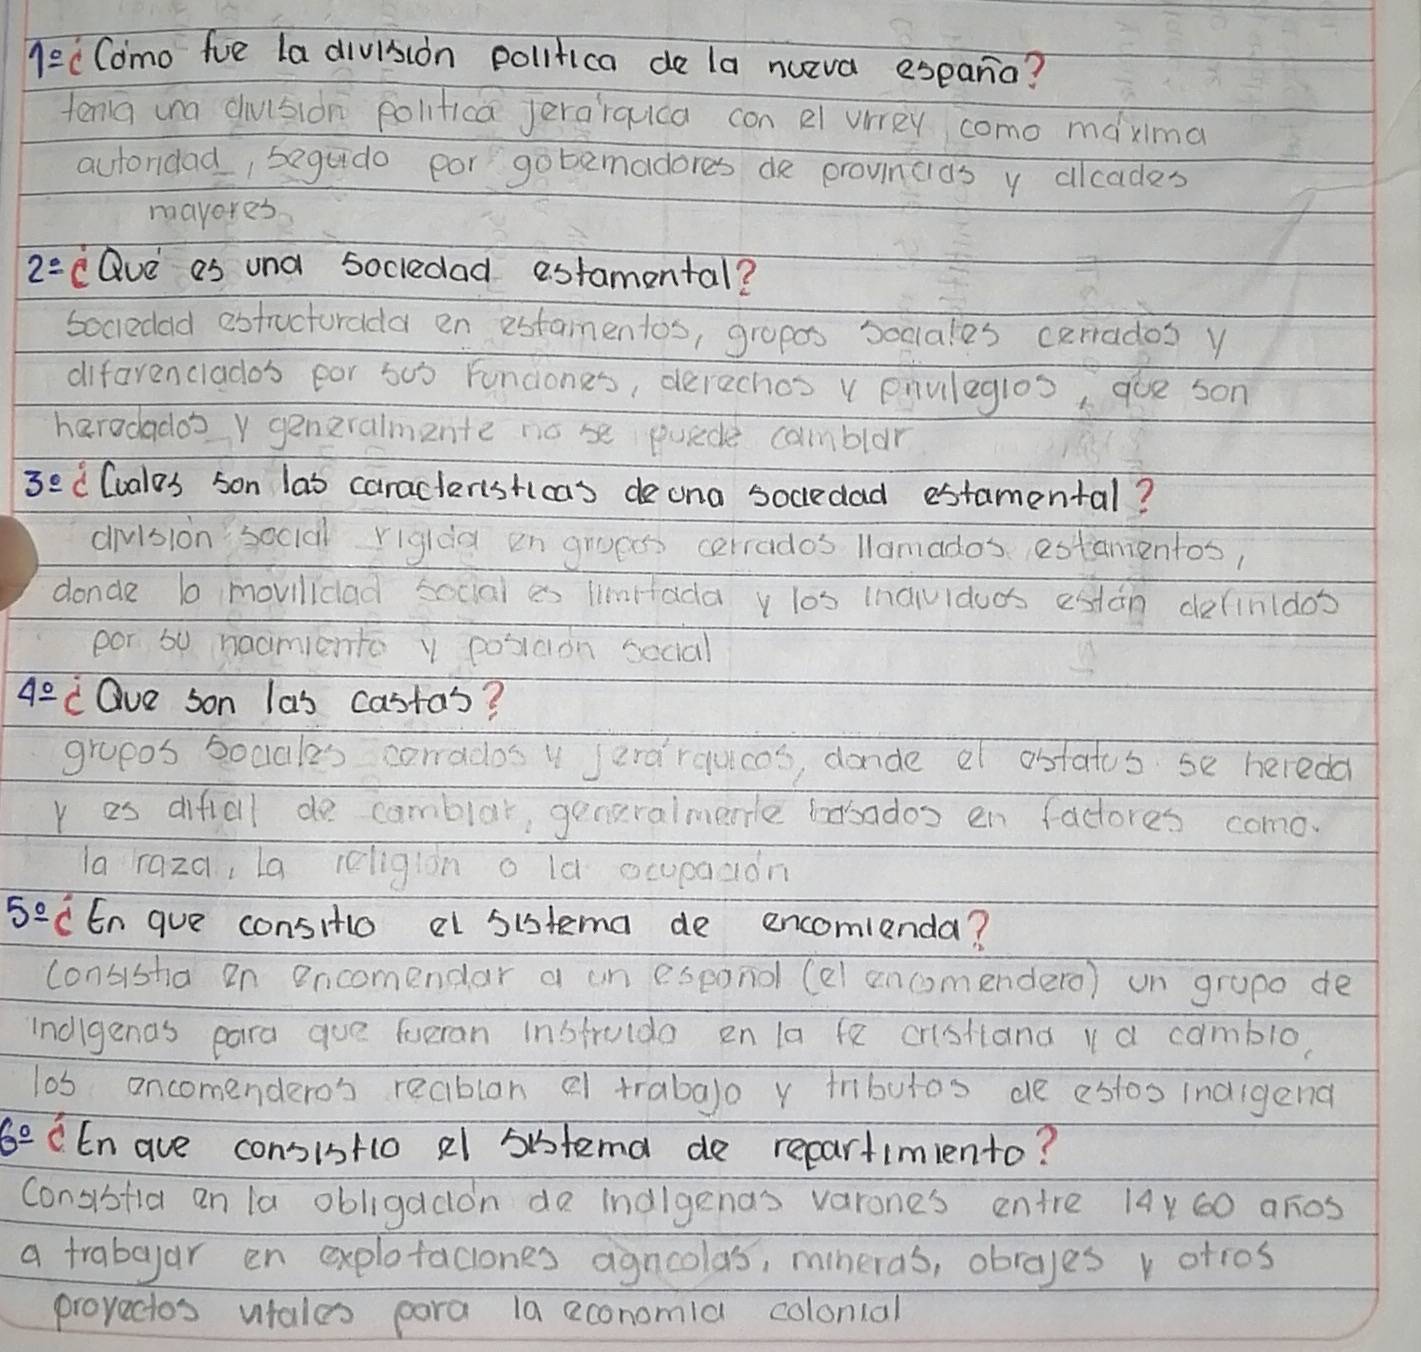 1º ¿Como fue la división politica de la nueva españa?
tenia una división politica jerárquica con el virrey como máxima
autoridad, seguido por gobernadores de provincias y alcades
mayores
2º ¿Qué es una sociedad estamental?
Sociedad estructurada en estamentos, grupos sociales cerrados y
diferenciados por sus funciones, derechos y privilegios, que son
heredados y generalmente no se puede cambiar
3º ¿Cuales son las caracteristicas de una sociedad estamental?
división social rigida en grupos cerrados llamados estamentos,
donde la movilidad social es limitada y los individuos están definidos
por su nacimiento y posición social
4º ¿Que son las castas?
grupos sociales cerrados y jerárquicos, donde el estatus se hereda
y es dificil de cambiar, generalmente basados en factores como
la raza, la religión o la ocupación
5º ¿En que consitio el sistema de encomienda?
Consistia en encomendar a un español (el encomendero) un grupo de
indigenas para que fueran instruido en la fe cristiana y a cambio,
los encomenderos recibian el trabajo y tributos de estos indigena
6º ¿En que consistio el sistema de repartimiento?
Consistia en la obligación de indigenas varones entre 14 y 60 años
a trabajar en explotaciones agricolas, mineras, obrajes y otros
proyectos vitales para la economia colonial